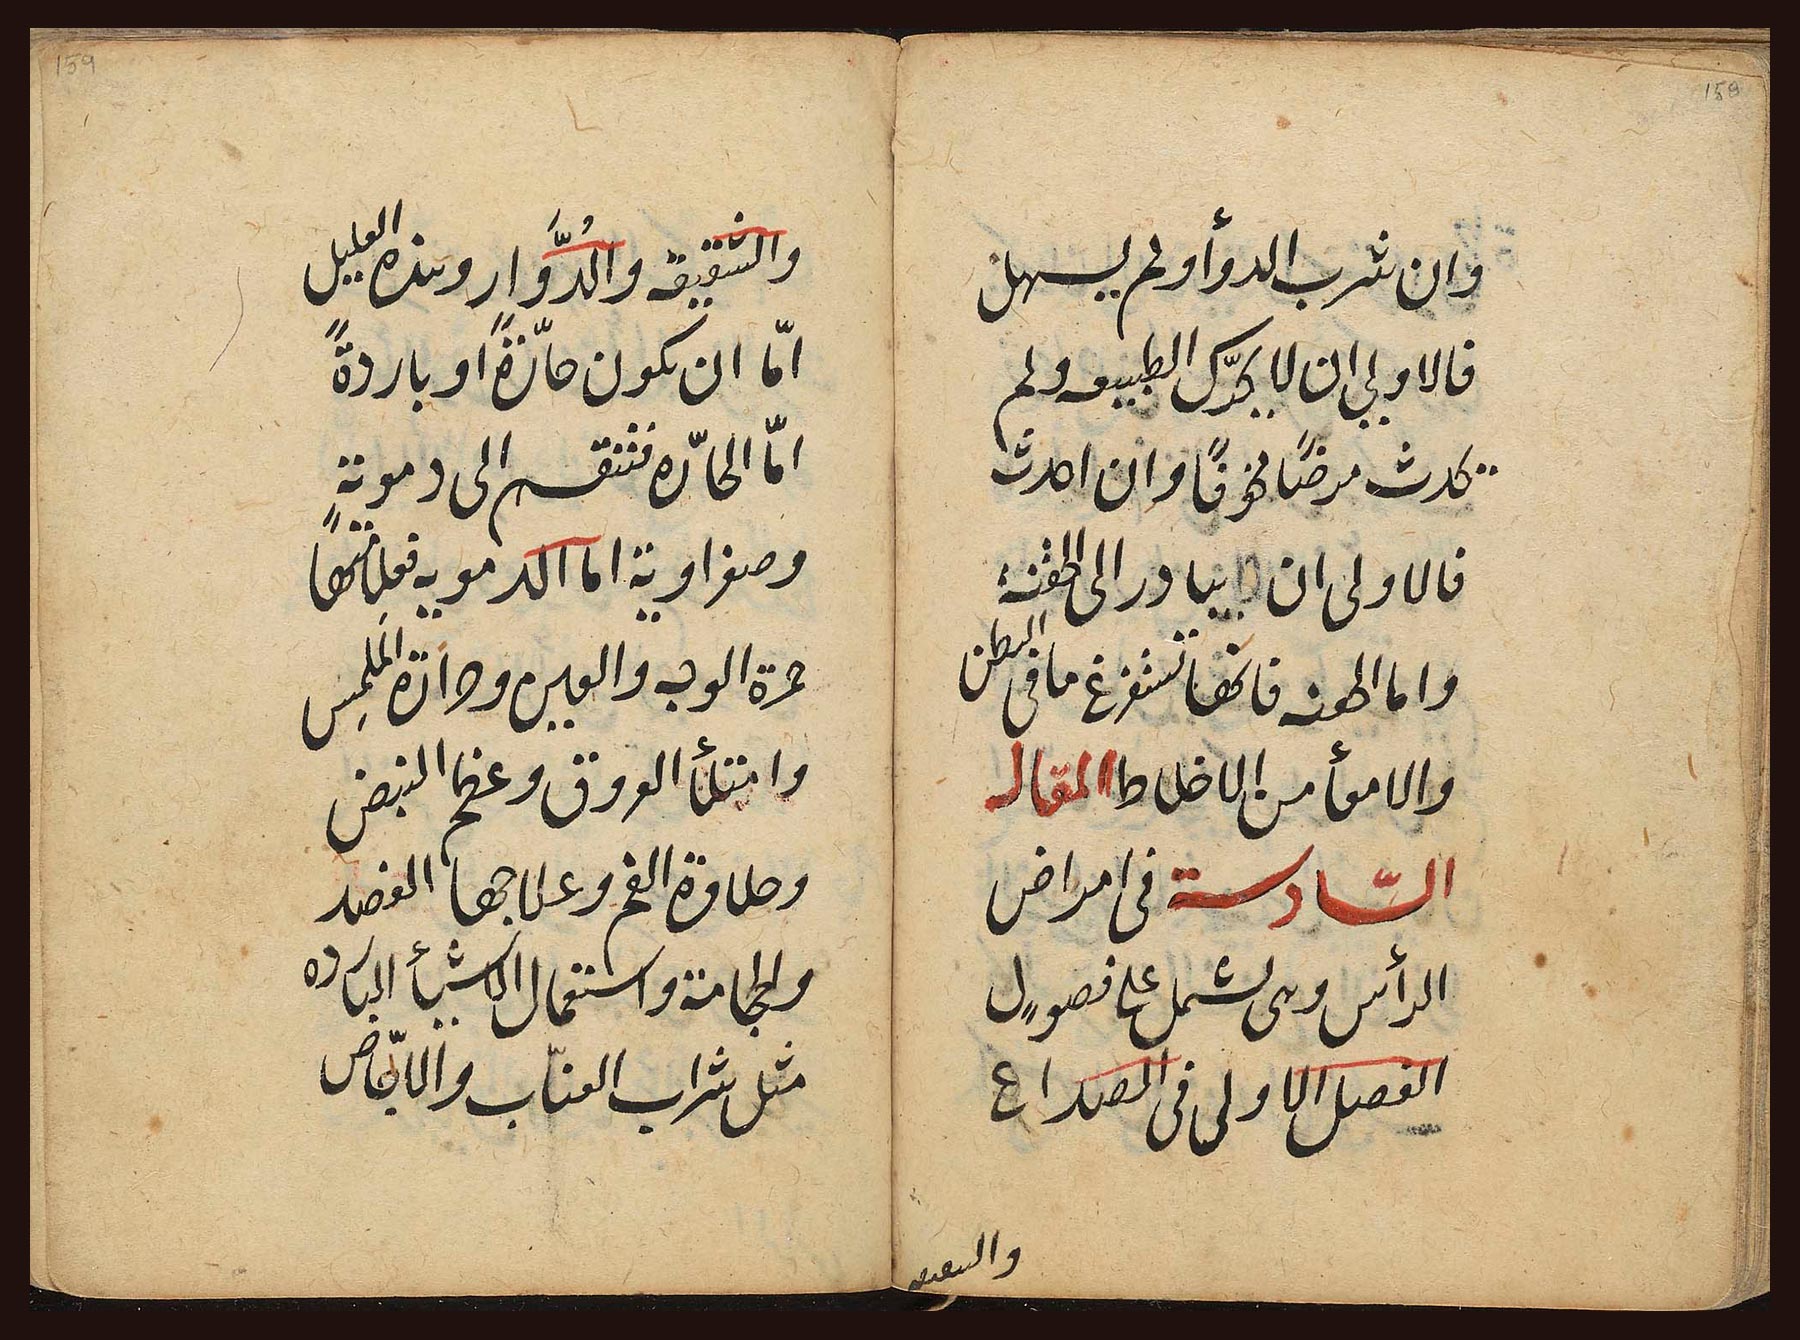 158
وان شرب الدوأ ولم يسهل
فالاولي ان لا يحرّك الطبيعه ولم
يحدث مرضًا مخوفًا وان احدث
فالاولى ان يبادر الى الحقنة
واما الحقنه فانها تستفرغ ما فى البطن
والامعأ من الاخلاط المقاله
السّادسة فى امراض
الرأس وهى تشمل على فصولٍ
الفصل الاولى فى الصداع
والشقيقه
159
والشقيقه والدُّوَّار وهذه العليل
امّا ان يكون حارّةً او باردةً
امّا الحارّه فتنقسم الى دموية
وصفراوية اما الدمويه فعلامتها
حمرة الوجه والعين وحرارة الملمِس
وامتلأ العروق وعظم النبض
وحلاوة الفم وعلاجها الفصد
والحجامة واستعمال الاشيأ البارده
مثل شراب العنّاب والاجّاص